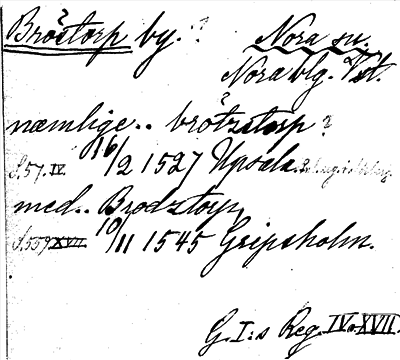 Bröstorp by. ? Nora sn.
Nora blg. Vst.
næmlige.. brötzstorp ?
S. 57. IV. 16/2 1527 Upsala.
med.. Brodztorp
S. 559 XVII. 10/11 1545 Gripsholm.
G. I:s Reg. IV o. XVII.